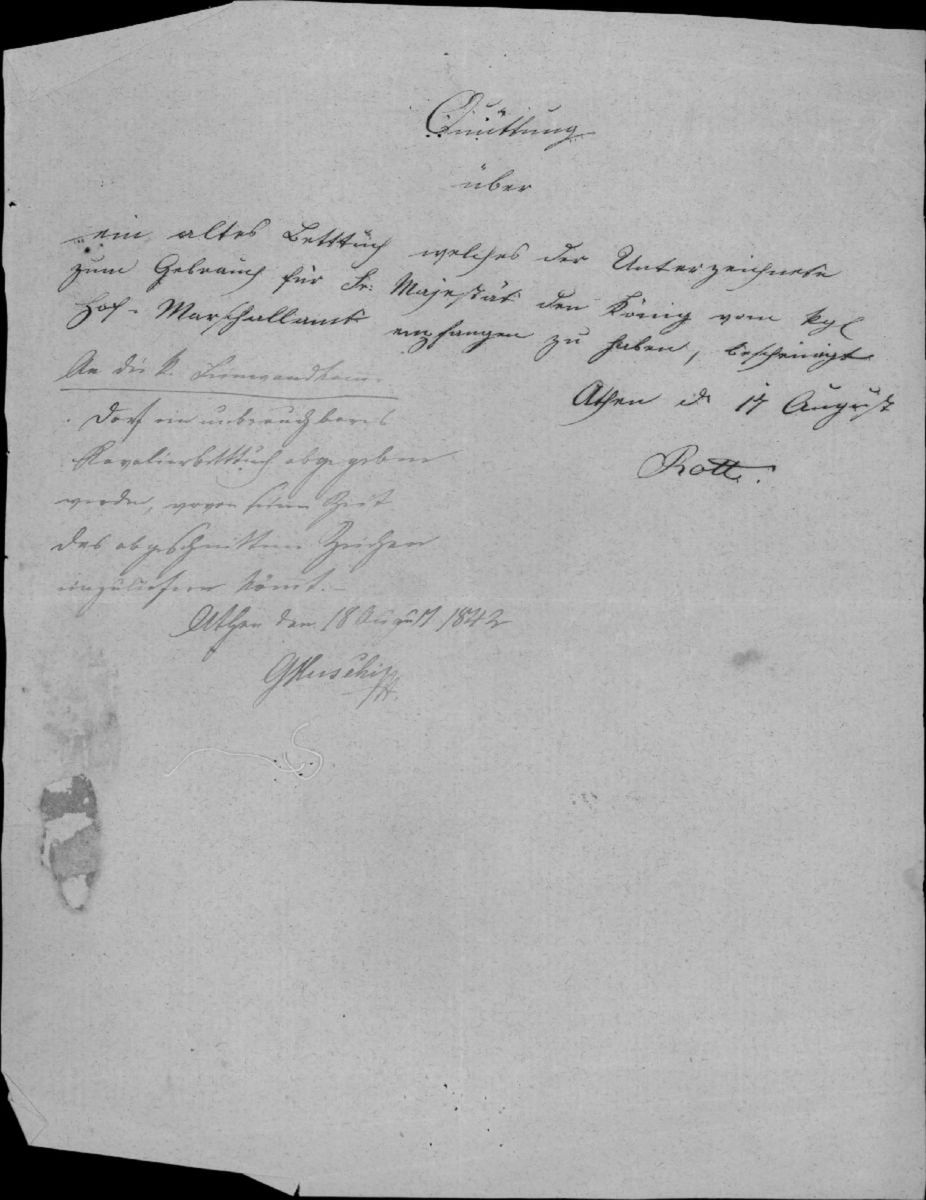 Quittung
über
ein altes Betttuch welches der Unterzeichnete
zum Gebrauch für Sr. Majestät den König vom kgl
Hof-Marschallamt empfangen zu haben, bescheinigt
Athen d. 17 August
Rott.
An die k. Leinwandkam.
Darf ein unbrauchbares
Kavalierbetttuch abgegeben
werden, wovon seiner Zeit
das abgeschnittene Zeichen
einzuliefern kömt.
Athen den 18 August 1842